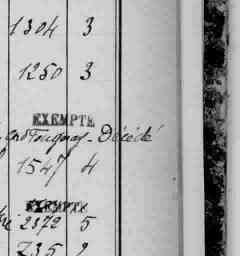 1304 3
1250 3
EXEMPTE
Décédé
1547 4
EXEMPTE
2372 5
735